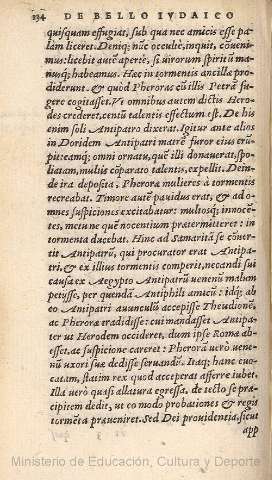 234 DE BELLO IVDAICO
quisquam effugiat, sub qua nec amicis esse pa-
lam liceret. Deniq; nũc occulte, inquit, coueni-
mus: licebit autẽ apertè, si uirorum spiritũ ma-
nusq; habeamus. Hæc in tormentis ancillæ pro-
diderunt. & quòd Pheroras cũ illis Petrã fu-
gere cogitasset. Vt omnibus autem dictis Hero-
des crederet, centũ talentis effectum est. De his
enim soli Antipatro dixerat. Igitur ante alios
in Doridem Antipatri matrẽ furor eius erũ-
pit: eamq; omni ornatu, quẽ illi donauerat, spo-
liatam, multis cõparato talentis, expellit. Dein-
de ira deposita, Pheroræ mulieres à tormentis
recreabat. Timore autẽ pauidus erat, & ad o-
mnes suspiciones excitabatur: multosq; innocẽ-
tes, metu ne quẽ nocentium prætermitteret: in
tormenta ducebat. Hinc ad Samaritã se cõuer-
tit Antipatrũ, qui procurator erat Antipa-
tri, & ex illius tormentis comperit, necandi sui
causa ex Aegypto Antipatrũ uenenũ malum
petysse, per quendã Antiphili amicũ: idq; ab
eo Antipatri auunculũ accepisse Theudionẽ,
ac Pheroræ tradidisse: cui mandasset Antipa-
ter ut Herodem occideret, dum ipse Romæ ab-
esset, ac suspicione careret: Pherorã uerò uene-
nũ uxori suæ dedisse seruandũ. Itaq; hanc euo-
catam, statim rex quod acceperat afferre iubet.
Illa uerò quasi allatura egressa, de tecto se præ-
cipitem dedit, ut eo modo probationes & regis
tormẽta præueniret. Sed Dei prouidentia, sicut
app
Ministerio de Educación, Cultura y Deporte